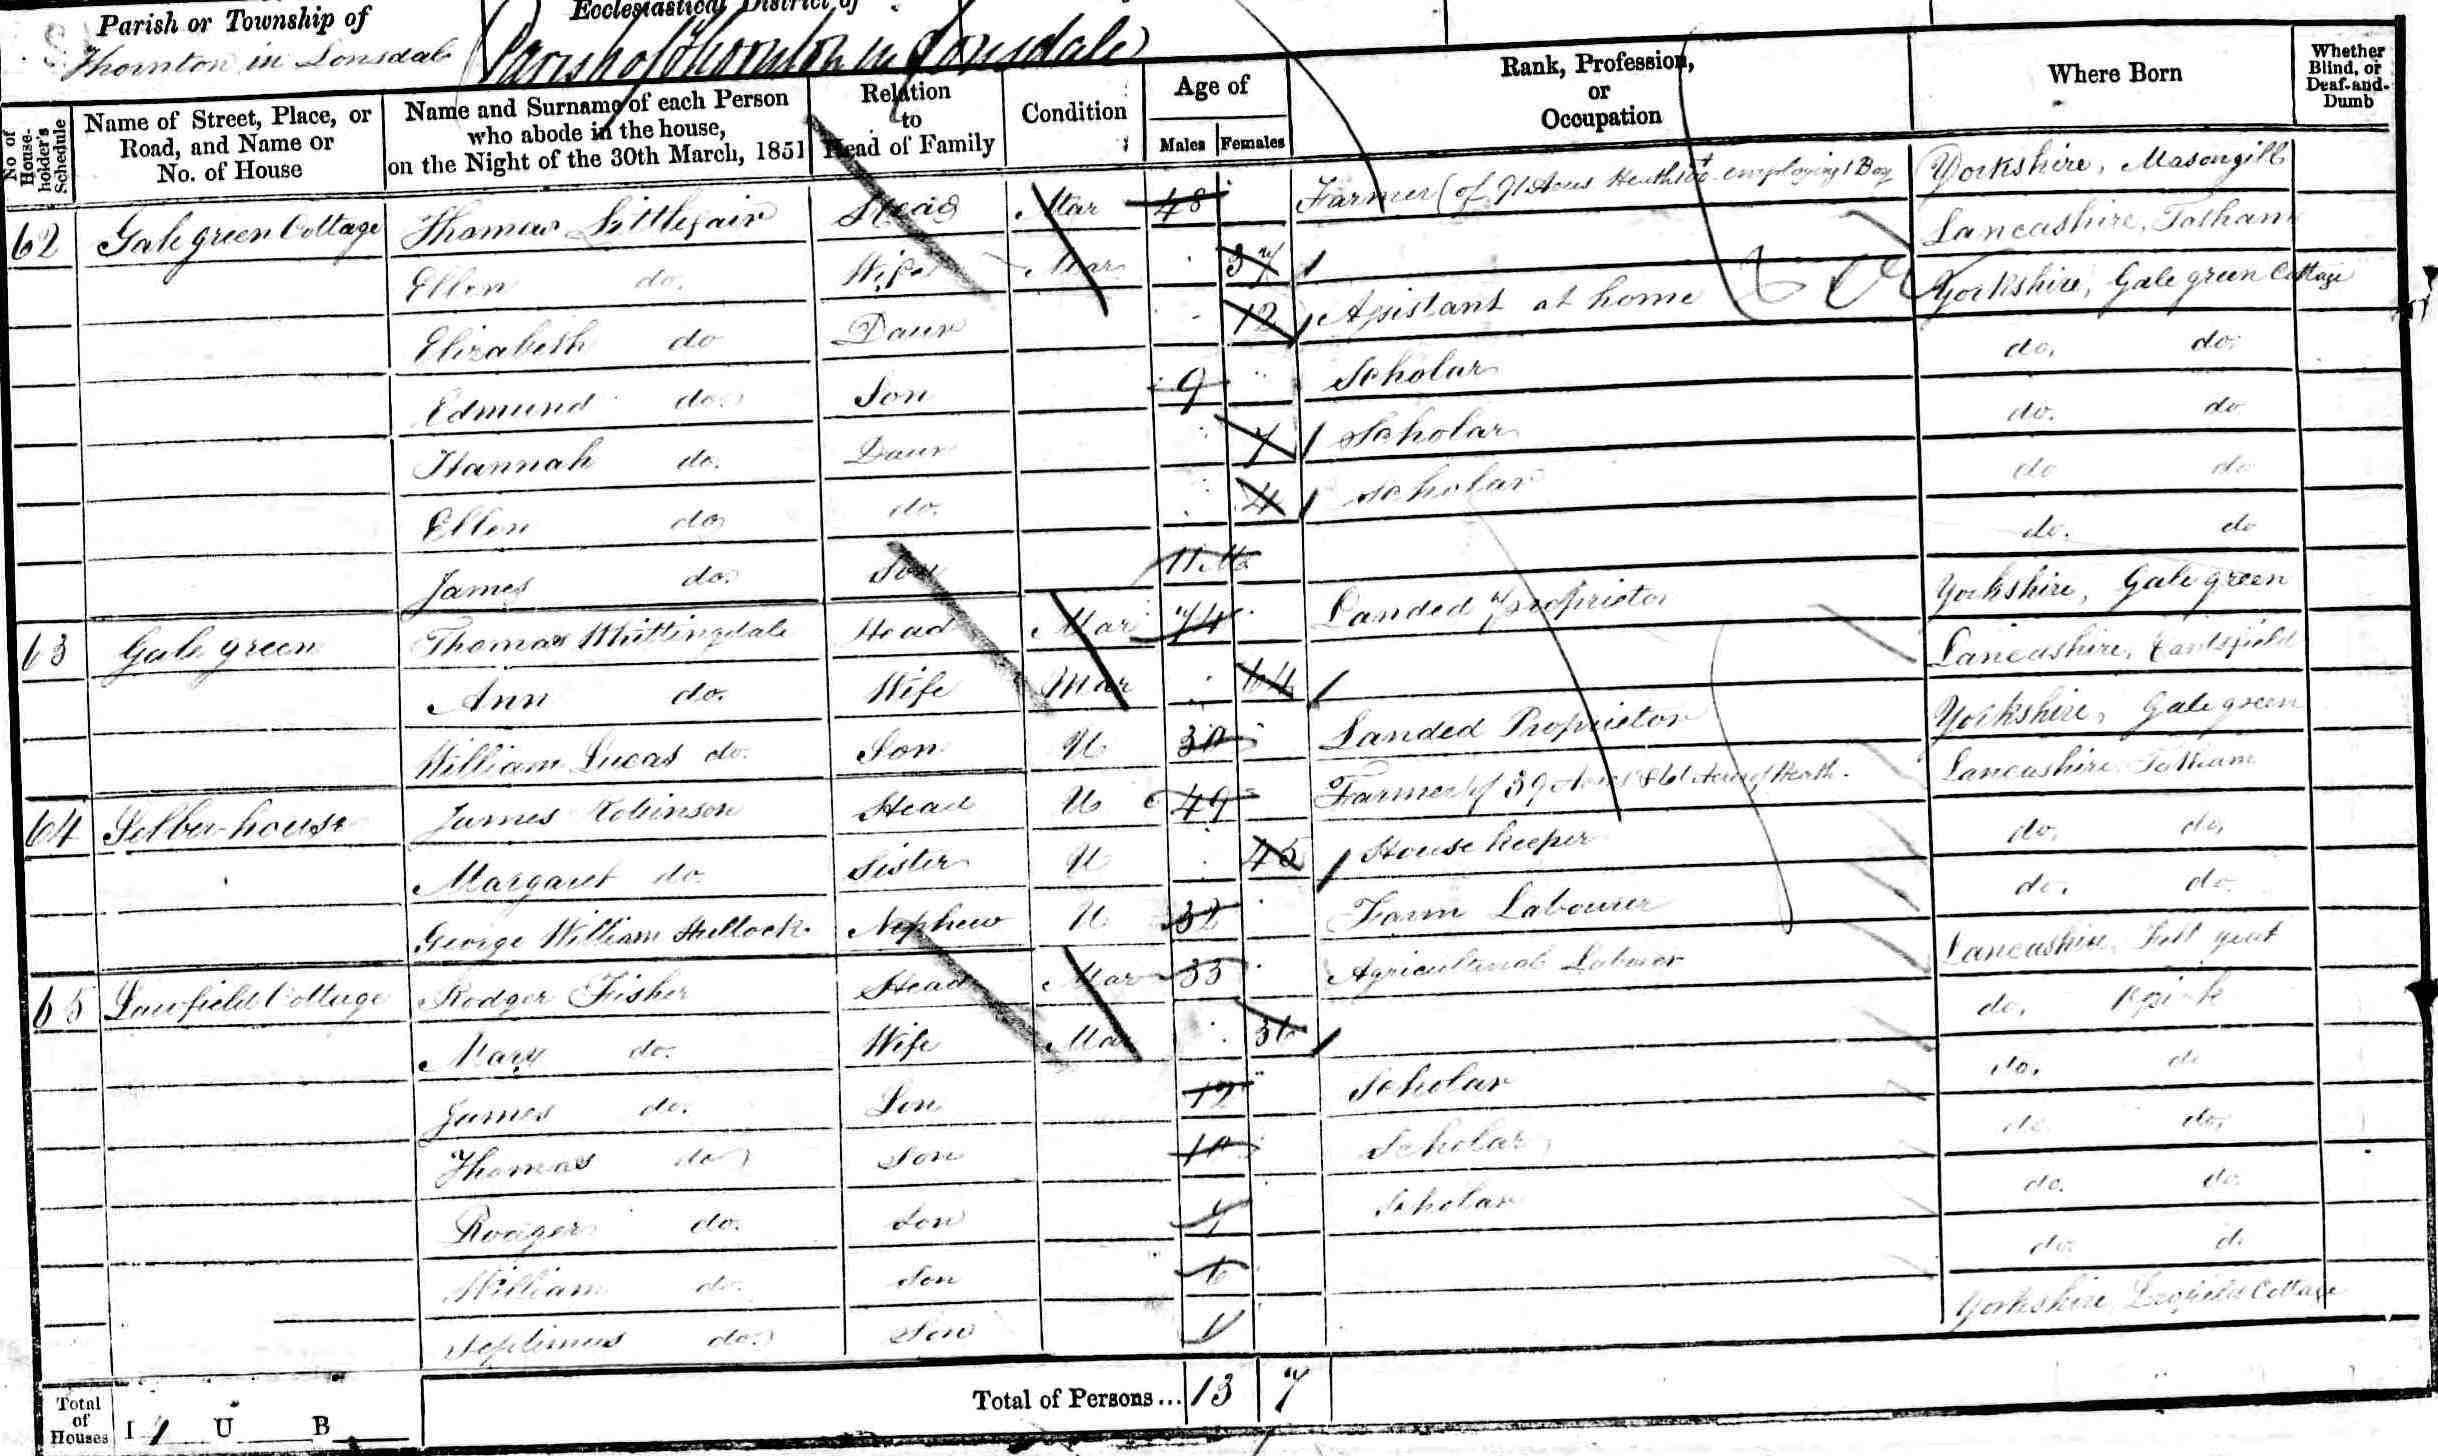 Parish or Township of
Ecclesiastical District of
Thornton in Lonsdale
Parish of Thornton in Lonsdale
No of House-holder's Schedule
Name of Street, Place, or Road, and Name or No. of House
Name and Surname of each Person who abode in the house, on the Night of the 30th March, 1851
Relation to Head of Family
Condition
Age of
Males Females
Rank, Profession, or Occupation
Where Born
Whether Blind, or Deaf-and-Dumb
62 Gale green Cottage Thomas Littlefair Head Mar 48 Farmer (of 91 Acres employing 1 Boy Yorkshire, Masongill
Ellen do. Wife Mar 37 Lancashire, Tatham
Elizabeth do Daur 12 Assistant at home Yorkshire, Gale green Cottage
Edmund do. Son 9 Scholar do. do.
Hannah do. Daur 7 Scholar do. do
Ellen do do. 4 Scholar do do
James do. Son 11 Mo do. do
63 Gale green Thomas Whittingdale Head Mar 74 Landed proprietor Yorkshire, Gale green
Ann do. Wife Mar 64 Lancashire, Cantsfield
William Lucas do. Son U 30 Landed Proprietor Yorkshire, Gale green
64 Selber house James Robinson Head U 49 Farmer of 39 Acres & 61 Acres of Heath. Lancashire Tatham
Margaret do. Sister U 45 House keeper do. do.
George William Hullock Nephew U 32 Farm Labourer do. do.
65 Lawfield Cottage Rodger Fisher Head Mar 33 Agricultural Laborer Lancashire,
Mary do. Wife Mar 36 do.
James do. Son 12 Scholar do. do
Thomas do Son 10 Scholar do do.
Rodger do. Son 7 Scholar do. do.
William do. Son 6 do. do.
Septimus do. Son 1 Yorkshire Cottage
Total of Houses I 4 U B
Total of Persons... 13 7